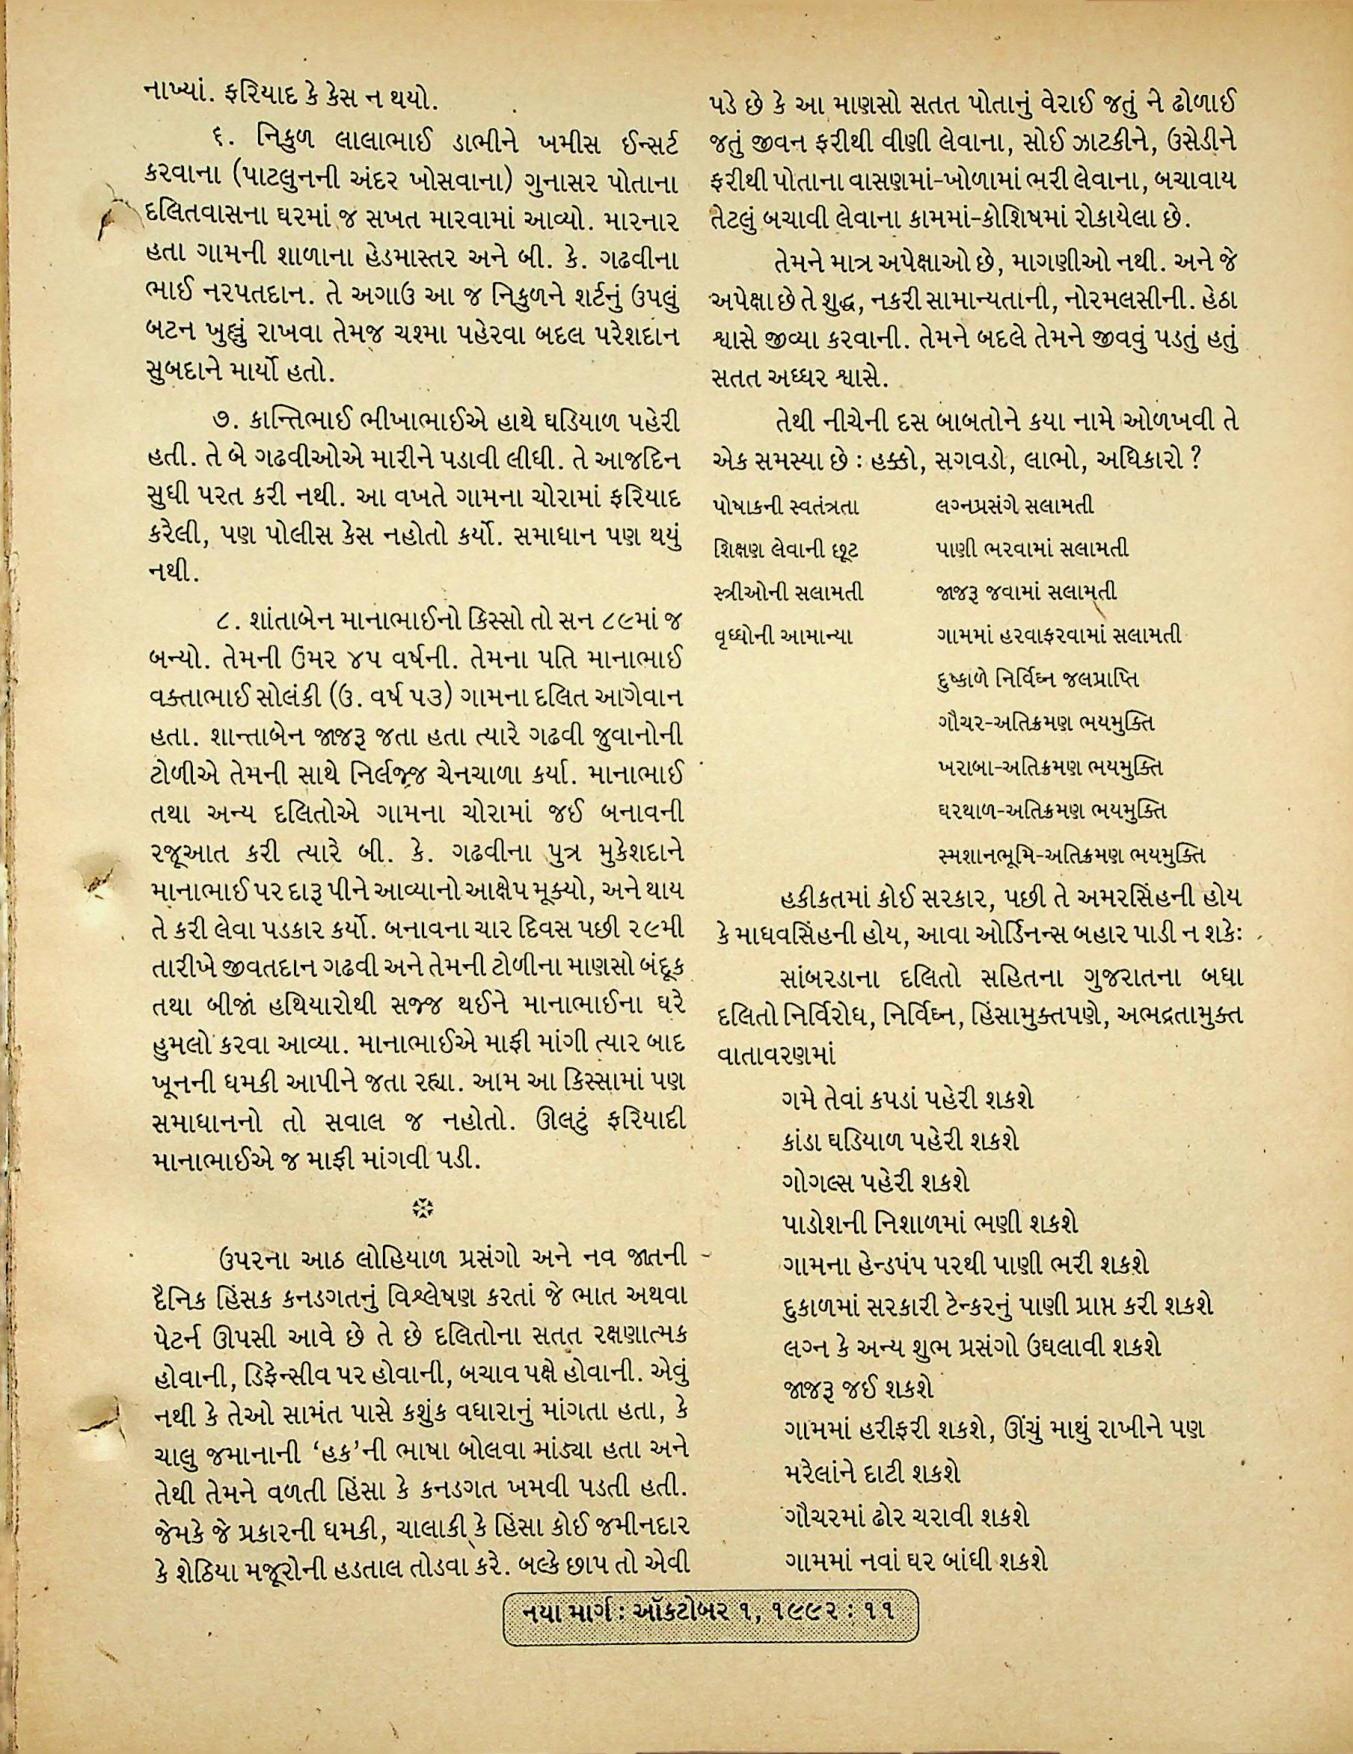 નાખ્યાં. ફરિયાદ કે કેસ ન થયો.
૬. નિકુળ લાલાભાઈ ડાભીને ખમીસ ઈન્સર્ટ
કરવાના (પાટલુનની અંદર ખોસવાના) ગુનાસર પોતાના
દલિતવાસના ઘરમાં જ સખત મારવામાં આવ્યો. મારનાર
હતા ગામની શાળાના હેડમાસ્તર અને બી. કે. ગઢવીના
ભાઈ નરપતદાન. તે અગાઉ આ જ નિકુળને શર્ટનું ઉપલું
બટન ખુલ્લું રાખવા તેમજ ચશ્મા પહેરવા બદલ પરેશદાન
સુબદાને માર્યો હતો.
૭. કાન્તિભાઈ ભીખાભાઈએ હાથે ઘડિયાળ પહેરી
હતી. તે બે ગઢવીઓએ મારીને પડાવી લીધી. તે આજદિન
સુધી પરત કરી નથી. આ વખતે ગામના ચોરામાં ફરિયાદ
કરેલી, પણ પોલીસ કેસ નહોતો કર્યો. સમાધાન પણ થયું
નથી.
૮. શાંતાબેન માનાભાઈનો કિસ્સો તો સન ૮૯માં જ
બન્યો. તેમની ઉંમર ૪૫ વર્ષની. તેમના પતિ માનાભાઈ
વક્તાભાઈ સોલંકી (ઉ. વર્ષ ૫૩) ગામના દલિત આગેવાન
હતા. શાન્તાબેન જાજરૂ જતા હતા ત્યારે ગઢવી જુવાનોની
ટોળીએ તેમની સાથે નિર્લજ્જ ચેનચાળા કર્યા. માનાભાઈ
તથા અન્ય દલિતોએ ગામના ચોરામાં જઈ બનાવની
રજૂઆત કરી ત્યારે બી. કે. ગઢવીના પુત્ર મુકેશદાને
માનાભાઈ પર દારૂ પીને આવ્યાનો આક્ષેપ મૂક્યો, અને થાય
તે કરી લેવા પડકાર કર્યો. બનાવના ચાર દિવસ પછી ૨૯મી
તારીખે જીવતદાન ગઢવી અને તેમની ટોળીના માણસો બંદૂક
તથા બીજાં હથિયારોથી સજ્જ થઈને માનાભાઈના ઘરે
હુમલો કરવા આવ્યા. માનાભાઈએ માફી માંગી ત્યાર બાદ
ખૂનની ધમકી આપીને જતા રહ્યા. આમ આ કિસ્સામાં પણ
સમાધાનનો તો સવાલ જ નહોતો. ઊલટું ફરિયાદી
માનાભાઈએ જ માફી માંગવી પડી.
ઉપરના આઠ લોહિયાળ પ્રસંગો અને નવ જાતની
દૈનિક હિંસક કનડગતનું વિશ્લેષણ કરતાં જે ભાત અથવા
પેટર્ન ઊપસી આવે છે તે છે દલિતોના સતત રક્ષણાત્મક
હોવાની, ડિફેન્સીવ પર હોવાની, બચાવ પક્ષે હોવાની. એવું
નથી કે તેઓ સામંત પાસે કશુંક વધારાનું માંગતા હતા, કે
ચાલુ જમાનાની ‘હક’ની ભાષા બોલવા માંડ્યા હતા અને
તેથી તેમને વળતી હિંસા કે કનડગત ખમવી પડતી હતી.
જેમકે જે પ્રકારની ધમકી, ચાલાકી કે હિંસા કોઈ જમીનદાર
કે શેઠિયા મજૂરોની હડતાલ તોડવા કરે. બલ્કે છાપ તો એવી
પડે છે કે આ માણસો સતત પોતાનું વેરાઈ જતું ને ઢોળાઈ
જતું જીવન ફરીથી વીણી લેવાના, સોઈ ઝાટકીને, ઉસેડીને
ફરીથી પોતાના વાસણમાં-ખોળામાં ભરી લેવાના, બચાવાય
તેટલું બચાવી લેવાના કામમાં-કોશિષમાં રોકાયેલા છે.
તેમને માત્ર અપેક્ષાઓ છે, માગણીઓ નથી. અને જે
અપેક્ષા છે તે શુદ્ધ, નકરી સામાન્યતાની, નોરમલસીની. હેઠા
શ્વાસે જીવ્યા કરવાની. તેમને બદલે તેમને જીવવું પડતું હતું
સતત અધ્ધર શ્વાસે.
તેથી નીચેની દસ બાબતોને કયા નામે ઓળખવી તે
એક સમસ્યા છે : હક્કો, સગવડો, લાભો, અધિકારો ?
પોષાકની સ્વતંત્રતા લગ્નપ્રસંગે સલામતી
શિક્ષણ લેવાની છૂટ પાણી ભરવામાં સલામતી
સ્ત્રીઓની સલામતી જાજરૂ જવામાં સલામતી
વૃધ્ધોની આમાન્યા ગામમાં હરવાફરવામાં સલામતી
દુષ્કાળે નિર્વિઘ્ન જલપ્રાપ્તિ
ગૌચર-અતિક્રમણ ભયમુક્તિ
ખરાબા-અતિક્રમણ ભયમુક્તિ
ઘરથાળ-અતિક્રમણ ભયમુક્તિ
સ્મશાનભૂમિ-અતિક્રમણ ભયમુક્તિ
હકીકતમાં કોઈ સરકાર, પછી તે અમરસિંહની હોય
કે માધવસિંહની હોય, આવા ઓર્ડિનન્સ બહાર પાડી ન શકેઃ
સાંબરડાના દલિતો સહિતના ગુજરાતના બધા
દલિતો નિર્વિરોધ, નિર્વિઘ્ન, હિંસામુક્તપણે, અભદ્રતામુક્ત
વાતાવરણમાં
ગમે તેવાં કપડાં પહેરી શકશે
કાંડા ઘડિયાળ પહેરી શકશે
ગોગલ્સ પહેરી શકશે
પાડોશની નિશાળમાં ભણી શકશે
ગામના હેન્ડપંપ પરથી પાણી ભરી શકશે
દુકાળમાં સરકારી ટેન્કરનું પાણી પ્રાપ્ત કરી શકશે
લગ્ન કે અન્ય શુભ પ્રસંગો ઉઘલાવી શકશે
જાજરૂ જઈ શકશે
ગામમાં હરીફરી શકશે, ઊંચું માથું રાખીને પણ
મરેલાંને દાટી શકશે
ગૌચરમાં ઢોર ચરાવી શકશે
ગામમાં નવાં ઘર બાંધી શકશે
નયા માર્ગ : ઑક્ટોબર ૧, ૧૯૯૨ : ૧૧